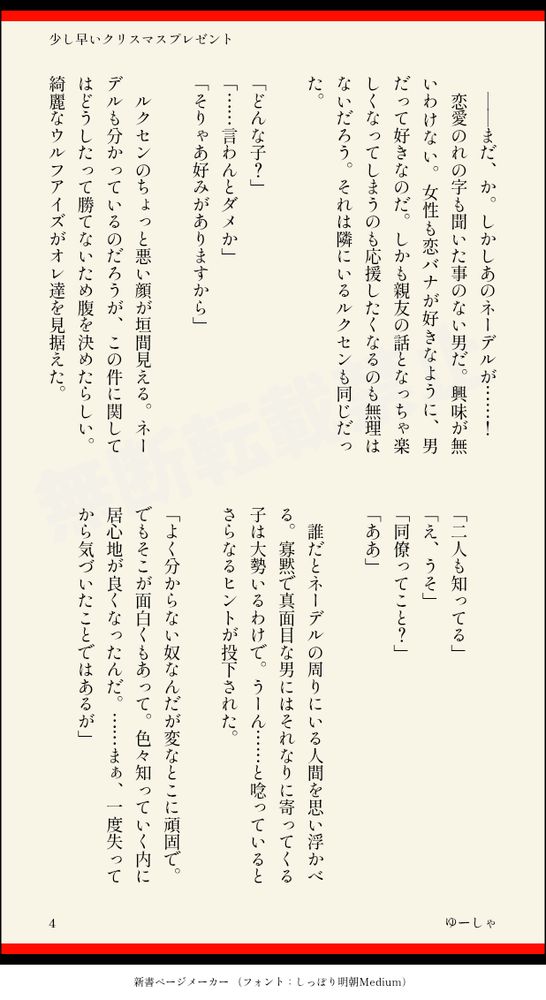 少し早いクリスマスプレゼント
――まだ、か。しかしあのネーデルが……！
恋愛のれの字も聞いた事のない男だ。興味が無
いわけない。女性も恋バナが好きなように、男
だって好きなのだ。しかも親友の話となっちゃ楽
しくなってしまうのも応援したくなるのも無理は
ないだろう。それは隣にいるルクセンも同じだっ
た。
「どんな子？」
「……言わんとダメか」
「そりゃあ好みがありますから」
ルクセンのちょっと悪い顔が垣間見える。ネー
デルも分かっているのだろうが、この件に関して
はどうしたって勝てないため腹を決めたらしい。
綺麗なウルフアイズがオレ達を見据えた。
「二人も知ってる」
「え、うそ」
「同僚ってこと？」
「ああ」
誰だとネーデルの周りにいる人間を思い浮かべ
る。寡黙で真面目な男にはそれなりに寄ってくる
子は大勢いるわけで。うーん……と唸っていると
さらなるヒントが投下された。
「よく分からない奴なんだが変なとこに頑固で。
でもそこが面白くもあって。色々知っていく内に
居心地が良くなったんだ。……まぁ、一度失って
から気づいたことではあるが」
4
ゆーしゃ
新書ページメーカー （フォント：しっぽり明朝Medium）
無断転載